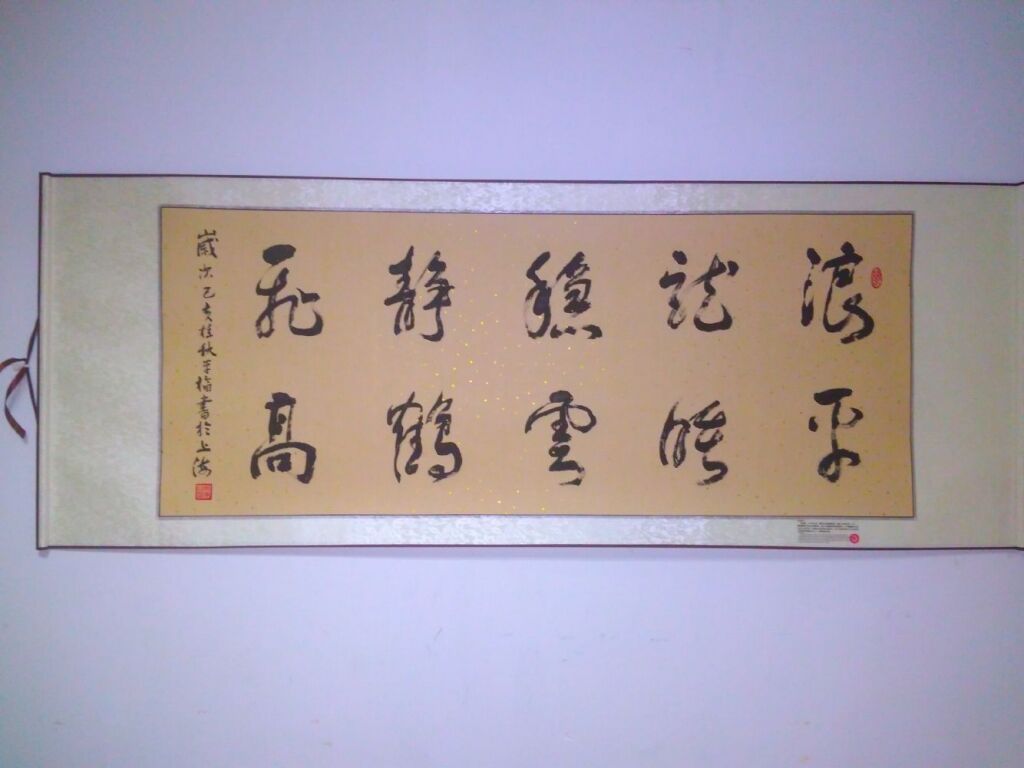 浪平
龍睡
穩雲
靜鶴
飛高
歲次己亥桂秋書於上海